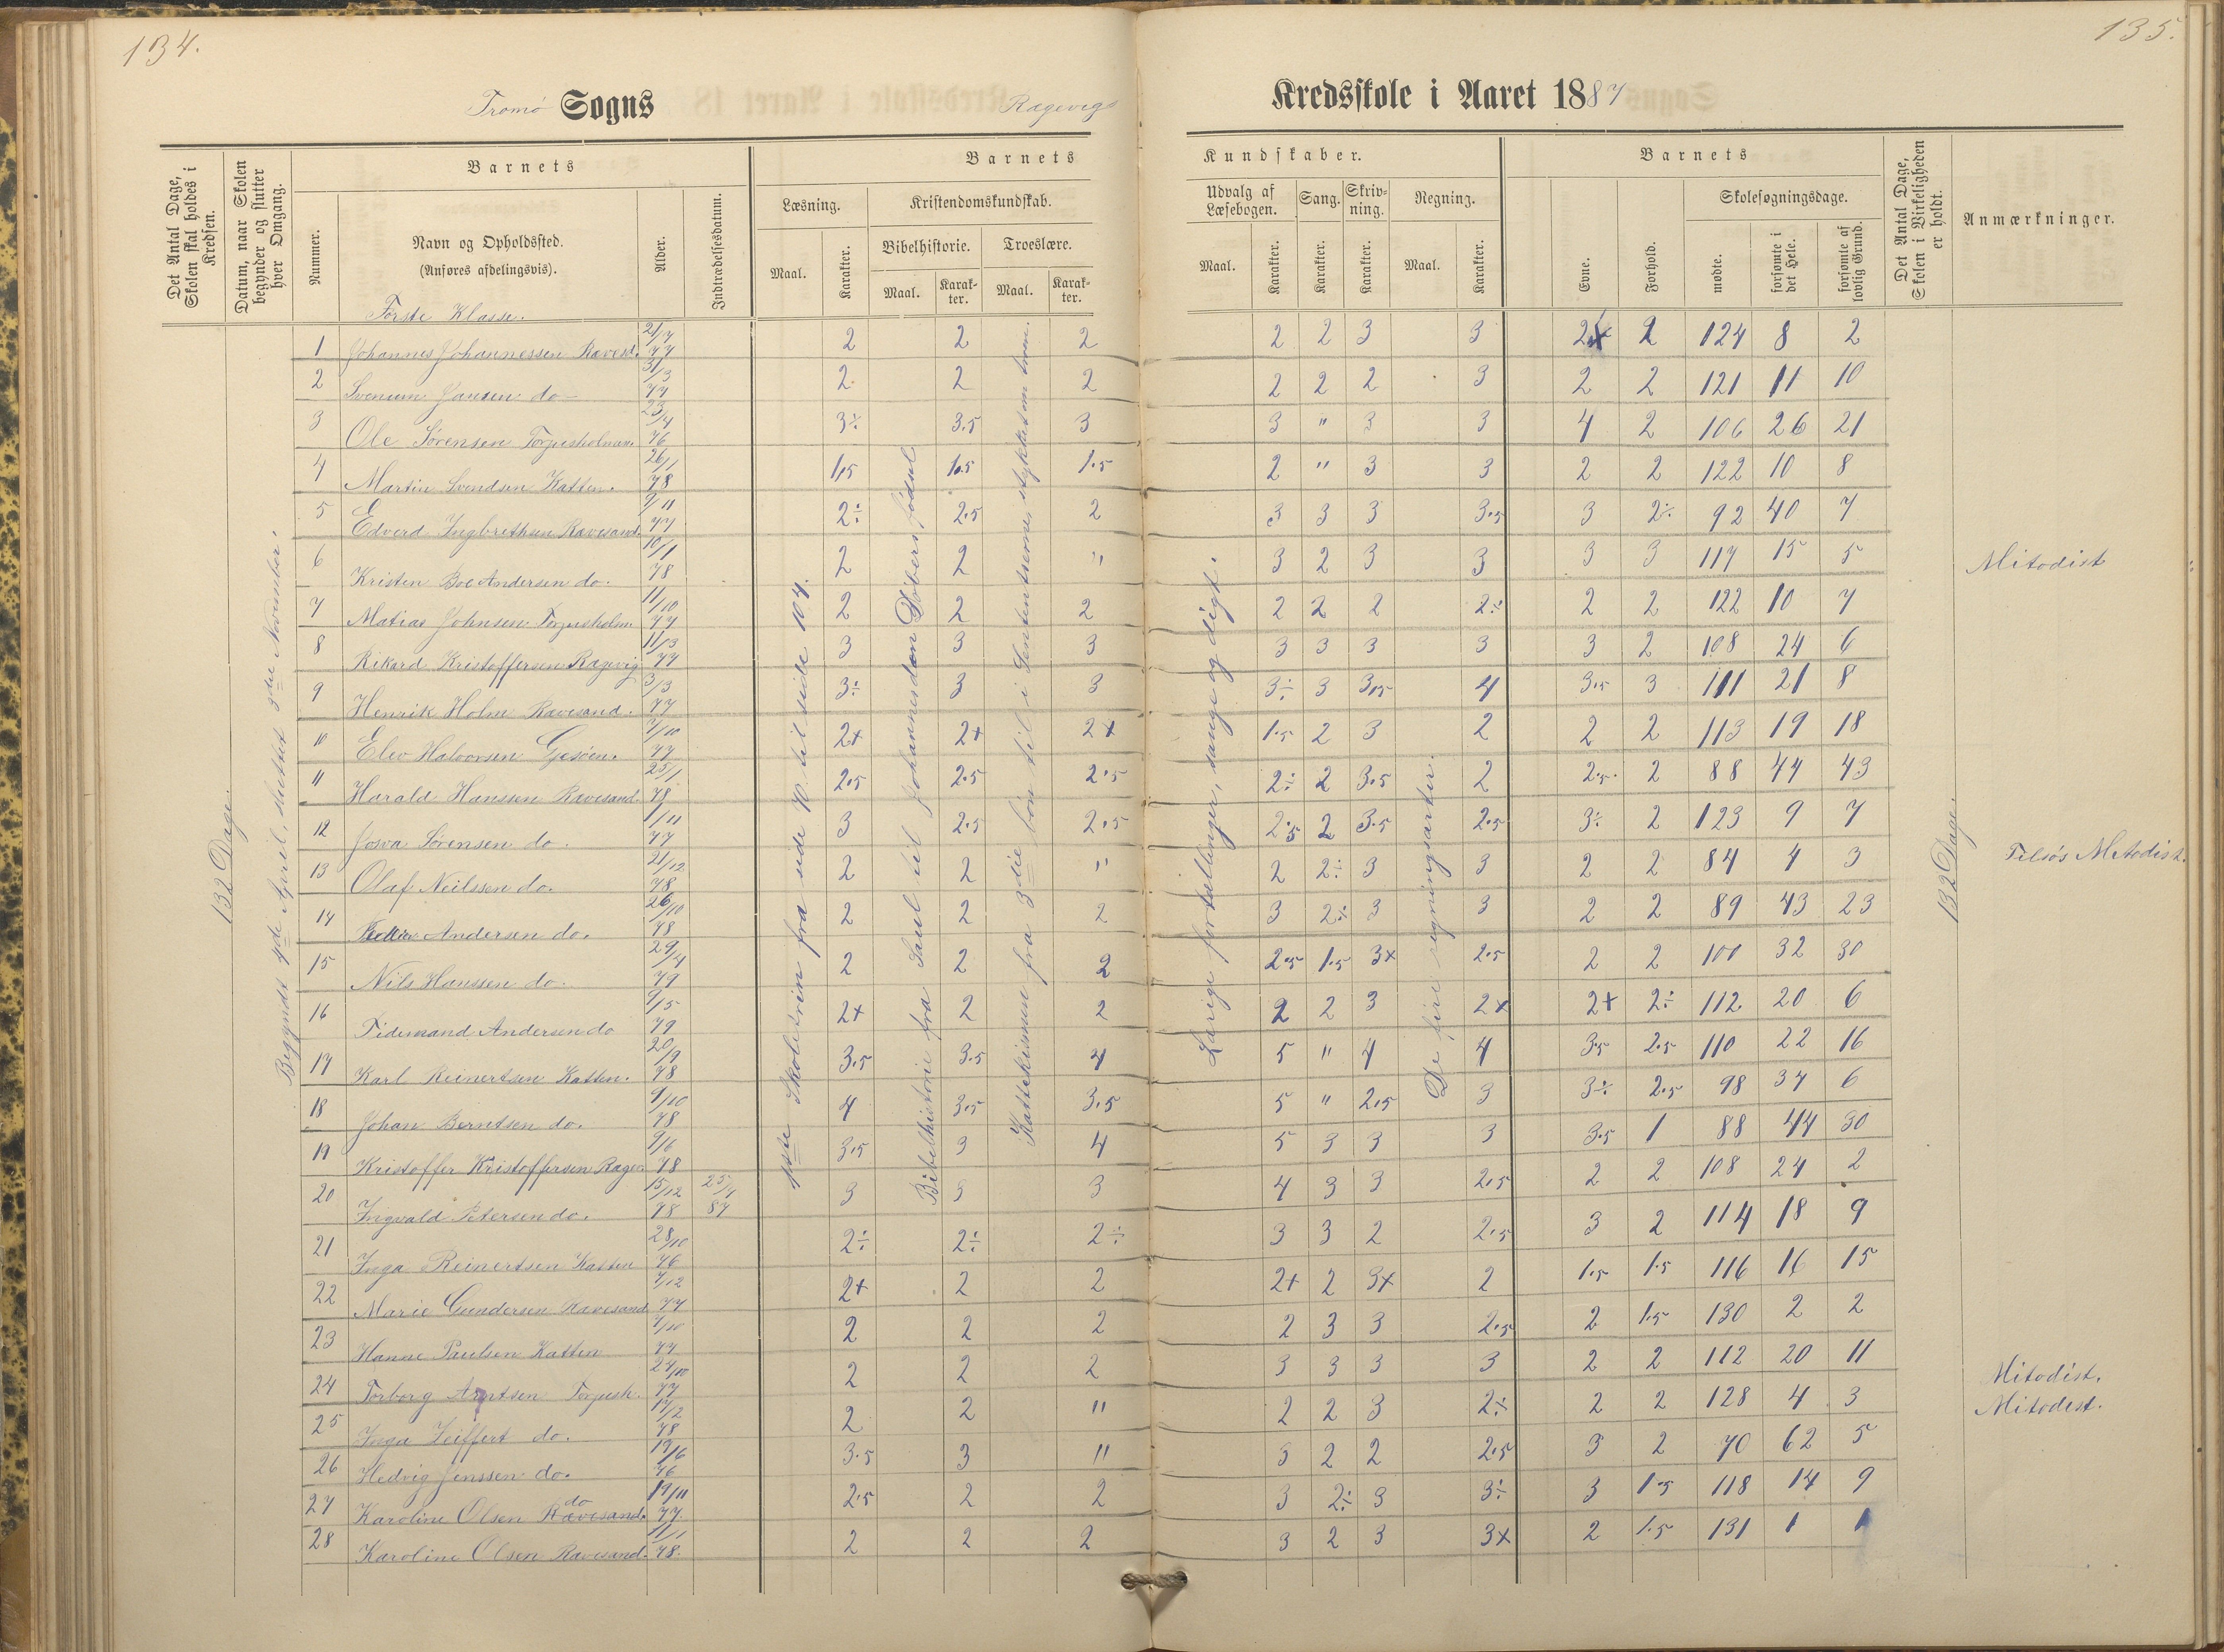 134.
135.
Tromö Sogns Ragevigs Kredsskole i Aaret 1887
Det Antal Dage, Skolen skal holdes i Kredsen.
Datum, naar Skolen begynder og slutter hver Omgang.
Barnets
Nummer.
Navn og Opholdssted.
(Anføres afdelingsvis).
Alder.
Indtrædelsesdatum.
Barnets Kundskaber.
Læsning.
Maal.
Karakter.
Kristendomskundskab.
Bibelhistorie.
Maal.
Karakter.
Troeslære.
Maal.
Karakter.
Udvalg af Læsebogen.
Maal.
Karakter.
Sang.
Karakter.
Skrivning.
Karakter.
Regning.
Maal.
Karakter.
Barnets
Evne.
Forhold.
Skolesøgningsdage.
mødte.
forsømte i det Hele.
forsømte af lovlig Grund.
Det Antal Dage, Skolen i Virkeligheden er holdt.
Anmærkninger.
132 Dage.
Begyndt 4de April, sluttet 3die November.
1ste Skoletrin fra side 70 til side 104.
Bibelhistorie fra Saul til Johannes den Döbers födsel
Kattekismen fra 3die bön til
Lærige fortællinger, sange og digt.
De fire regningsarter.
132 Dage.
Første Klasse.
1 Johannes Johannessen Ravesd. 21/7 77 2 2 2 2 2 3 3 2+ 2 124 8 2
2 Svenum Jansen do 31/3 77 2 2 2 2 2 2 3 2 2 121 11 10
3 Ole Sørensen Torjusholmen 23/4 76 3÷ 3.5 3 3 " 3 3 4 2 106 26 21
4 Martin Svendsen Katten. 26/1 78 1,5 1.5 1.5 2 " 3 3 2 2 122 10 8
5 Edverd Ingbrethsen Ravesand. 9/11 77 2÷ 2.5 2 3 3 3 3.5 3 2÷ 92 40 7
6 Kristen Boe Andersen do. 10/1 78 2 2 " 3 2 3 3 3 3 117 15 5 Mitodist
7 Matias Johnsen Torjusholm. 11/10 77 2 2 2 2 2 2 2÷ 2 2 122 10 7
8 Rikard Kristoffersen Ragevig 11/3 77 3 3 3 3 3 3 3 3 2 108 24 6
9 Henrik Holm Ravesand. 3/3 77 3÷ 3 3 3÷ 3 3,5 4 3.5 3 111 21 8
10 Elev Halvorsen Gjesöen. 7/10 77 2+ 2+ 2+ 1.5 2 3 2 2 2 113 19 18
11 Harald Hanssen Ravesand. 25/1 78 2.5 2.5 2.5 2÷ 2 3.5 2 2.5 2 88 44 43
12 Josva Sørensen do. 1/11 77 3 2.5 2.5 2.5 2 3.5 2.5 3÷ 2 123 9 7
13 Olaf Neilssen do. 21/12 78 2 2 " 2 2÷ 3 3 2 2 84 4 3 Metodist.
14 Andersen do. 26/10 78 2 2 2 3 2÷ 3 3 2 2 89 43 23
15 Nils Hanssen do. 29/4 79 2 2 2 2.5 1.5 3+ 2.5 2 2 100 32 30
16 Tidemand Andersen do 9/5 79 2+ 2 2 2 2 3 2+ 2+ 2÷ 112 20 6
17 Karl Reinertsen Katten. 20/9 78 3.5 3.5 4 5 " 4 4 3.5 2.5 110 22 16
18 Johan Berntsen do. 9/10 78 4 3.5 3.5 5 " 2.5 3 3÷ 2.5 98 34 6
19 Kristoffer Kristoffersen Ragev 9/6 78 3.5 3 4 5 3 3 3 3.5 1 88 44 30
20 Ingvald Petersen do. 15/12 78 25/1 87 3 3 3 4 3 3 2.5 2 2 108 24 2
21 Inga Reinertsen Katten 28/10 76 2÷ 2÷ 2÷ 3 3 2 2.5 3 2 114 18 9
22 Marie Gundersen Ravesand 7/12 77 2+ 2 2 2+ 2 3+ 2 1.5 1.5 116 16 15
23 Hanne Paulsen Katten 7/10 77 2 2 2 2 3 3 2.5 2 1.5 130 2 2
24 Torborg Arntsen Torjush. 24/10 77 2 2 2 3 3 3 3 2 2 112 20 11
25 Inga Zeiffert do. 17/2 78 2 2 " 2 2 3 2÷ 2 2 128 4 3 Mitodist.
26 Hedvig Jenssen do. 19/6 76 3.5 3 " 3 2 2 2.5 3 2 70 62 5 Mitodist.
27 Karoline Olsen Ravesand. do 19/11 77. 2.5 2 2 3 2÷ 3 3÷ 3 1.5 118 14 9
28 Karoline Olsen Ravesand. 11/1 78. 2 2 2 3 2 3 3+ 2 1.5 131 1 1